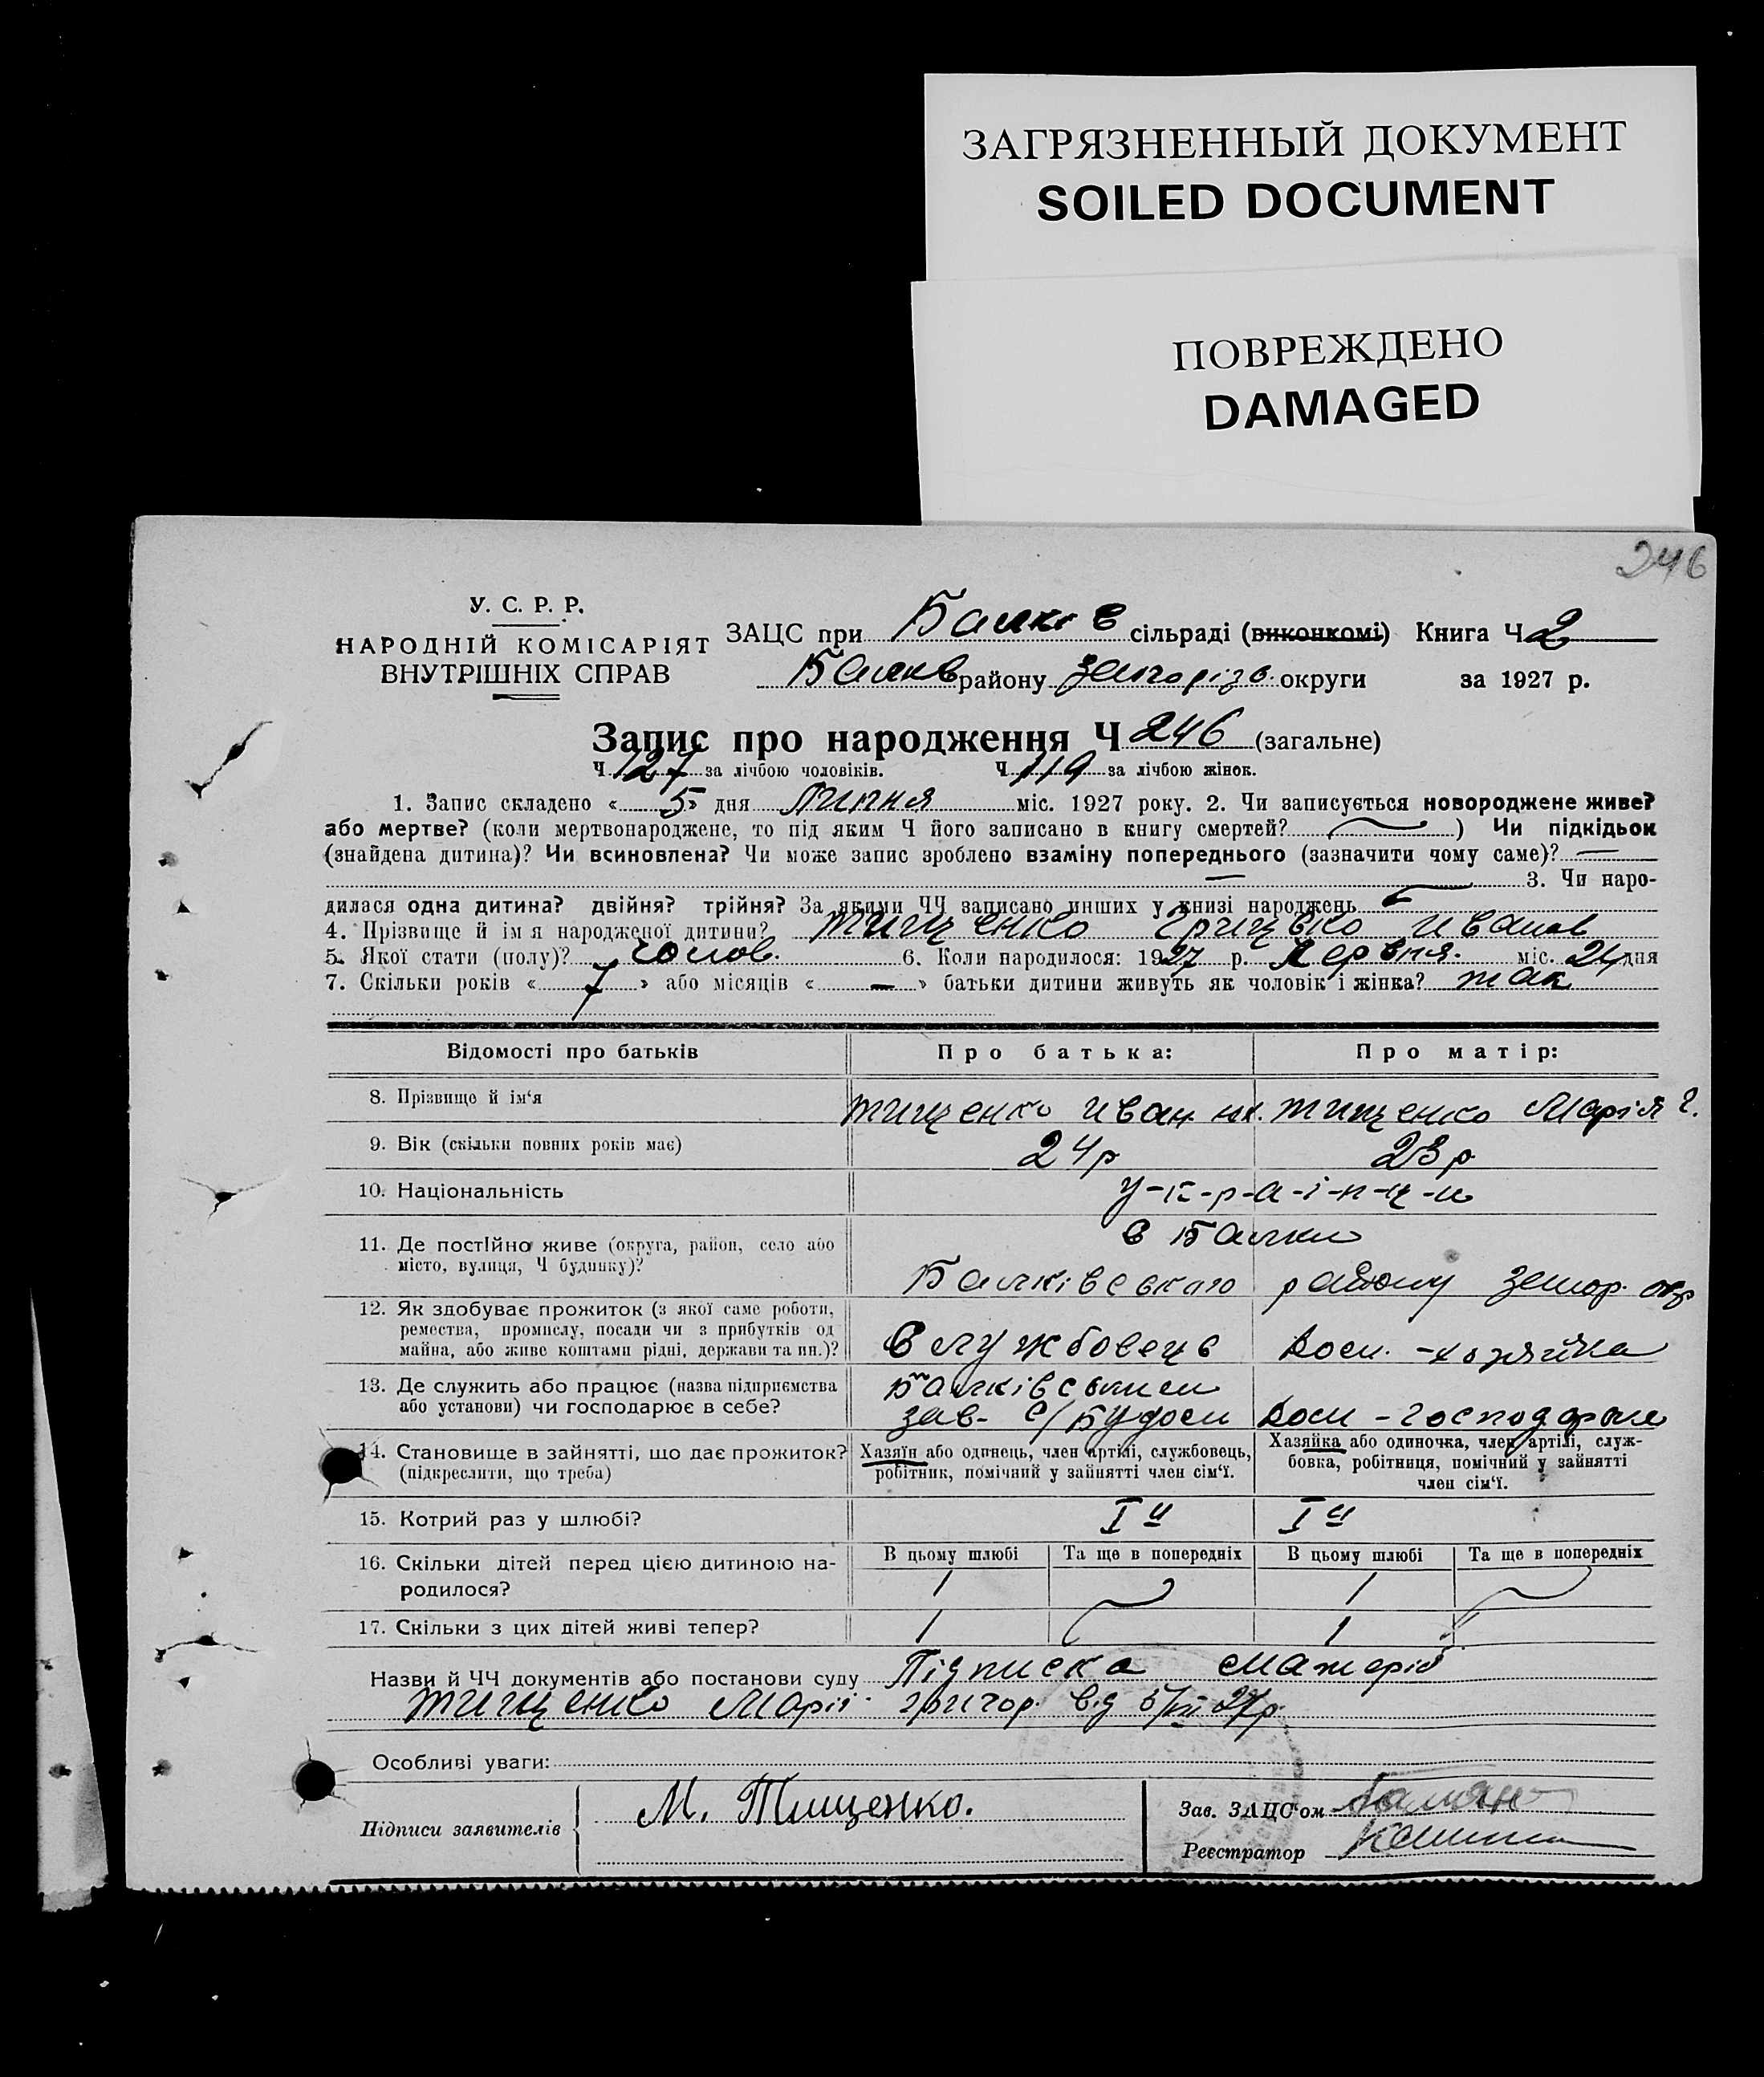 ЗАГРЯЗНЕННЫЙ ДОКУМЕНТ
SOILED DOCUMENT
ПОВРЕЖДЕНО
DAMAGED
246
У. С. Р. Р.
НАРОДНІЙ КОМІСАРІЯТ
ВНУТРІШНІХ СПРАВ
ЗАЦС при Балків сільраді (виконкомі) Книга Ч 2
Балків району Запоріз. округи за 1927 р.
Запис про народження Ч 246 (загальне)
Ч 127 за лічбою чоловіків. Ч 119 за лічбою жінок.
1. Запис складено « 5 » дня Липня міс. 1927 року. 2. Чи записується новороджене живе?
або мертве? (коли мертвонароджене, то під яким Ч його записано в книгу смертей? ) Чи підкідьок
(знайдена дитина)? Чи всиновлена? Чи може запис зроблено взаміну попереднього (зазначити чому саме)? —
— 3. Чи наро-
дилася одна дитина? двійня? трійня? За якими ЧЧ записано инших у книзі народжень
4. Прізвище й ім'я народженої дитини? Тищенко Грицько Иванов
5. Якої стати (полу)? чолов. 6. Коли народилося: 1927 р. Червня. міс. 24 дня
7. Скільки років « 7 » або місяців « — » батьки дитини живуть як чоловік і жінка? так
Відомості про батьків Про батька: Про матір:
8. Прізвище й ім'я Тищенко Иван Тищенко Марія Г.
9. Вік (скільки повних років має) 24 р 23 р
10. Національність у-к-р-а-ї-н-ц-и
11. Де постійно живе (округа, район, село або
місто, вулиця, Ч будинку)?
в Балки
Балківського району Запор. окр
12. Як здобуває прожиток (з якої саме роботи,
ремества, промислу, посади чи з прибутків од
майна, або живе коштами рідні, держави та ин.)?
Службовець Дом. -хозяйка
13. Де служить або працює (назва підприємства
або установи) чи господарює в себе?
Балківським
зав- С/Будом Дом - господарка
14. Становище в зайнятті, що дає прожиток?
(підкреслити, що треба)
Хазяїн або одинець, член артілі, службовець,
робітник, помічний у зайнятті член сім'ї.
Хазяйка або одиночка, член артілі, служ-
бовка, робітниця, помічний у зайнятті
член сім'ї.
15. Котрий раз у шлюбі? I й I й
16. Скільки дітей перед цією дитиною на-
родилося?
В цьому шлюбі Та ще в попередніх В цьому шлюбі Та ще в попередніх
1 1
17. Скільки з цих дітей живі тепер? 1 1
Назви й ЧЧ документів або постанови суду Підписка матері
Тищенко Марії Григор. від 5/VII 27 р.
Особливі уваги:
Підписи заявителів М. Тищенко.
Зав. ЗАЦС'ом
Реєстратор